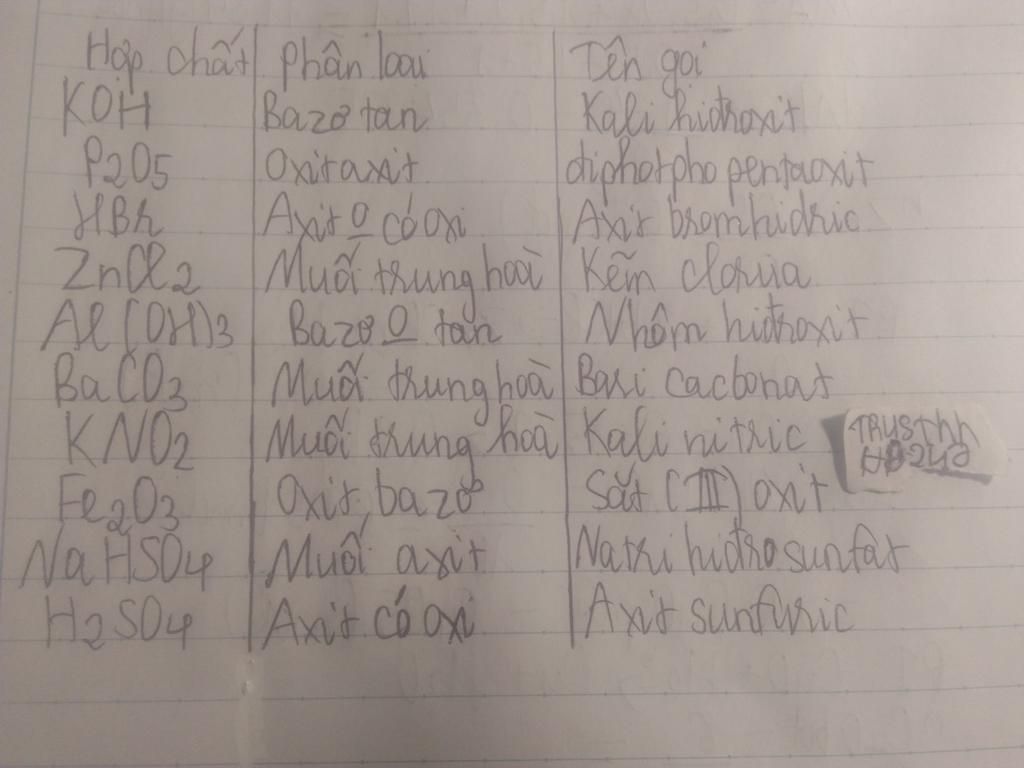 Hợp chất Phân loại Tên gọi
KOH Bazơ tan Kali hiđroxit
P2O5 Oxit axit điphotpho pentaoxit
HBr Axit O có oxi Axit bromhidric
ZnCl2 Muối trung hoà Kẽm clorua
Al(OH)3 Bazơ O tan Nhôm hiđroxit
BaCO3 Muối trung hoà Bari cacbonat
KNO2 Muối trung hoà Kali nitric
Fe2O3 Oxit bazơ Sắt (III) oxit
NaHSO4 Muối axit Natri hiđro sunfat
H2SO4 Axit có oxi Axit sunfuric